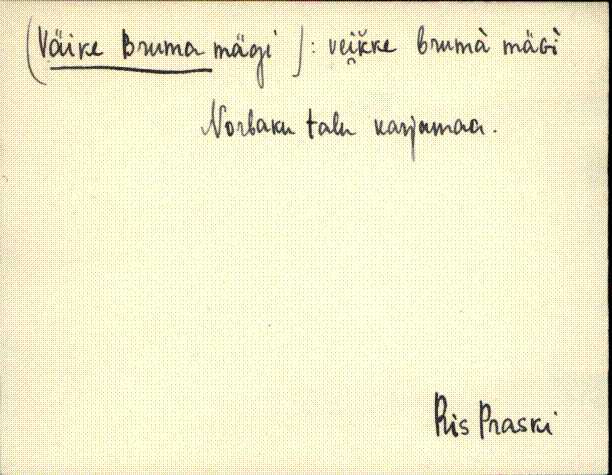 (Väike Bruma mägi): veikke brumà mäGì
Norbaku talu karjamaa.
Ris Praski